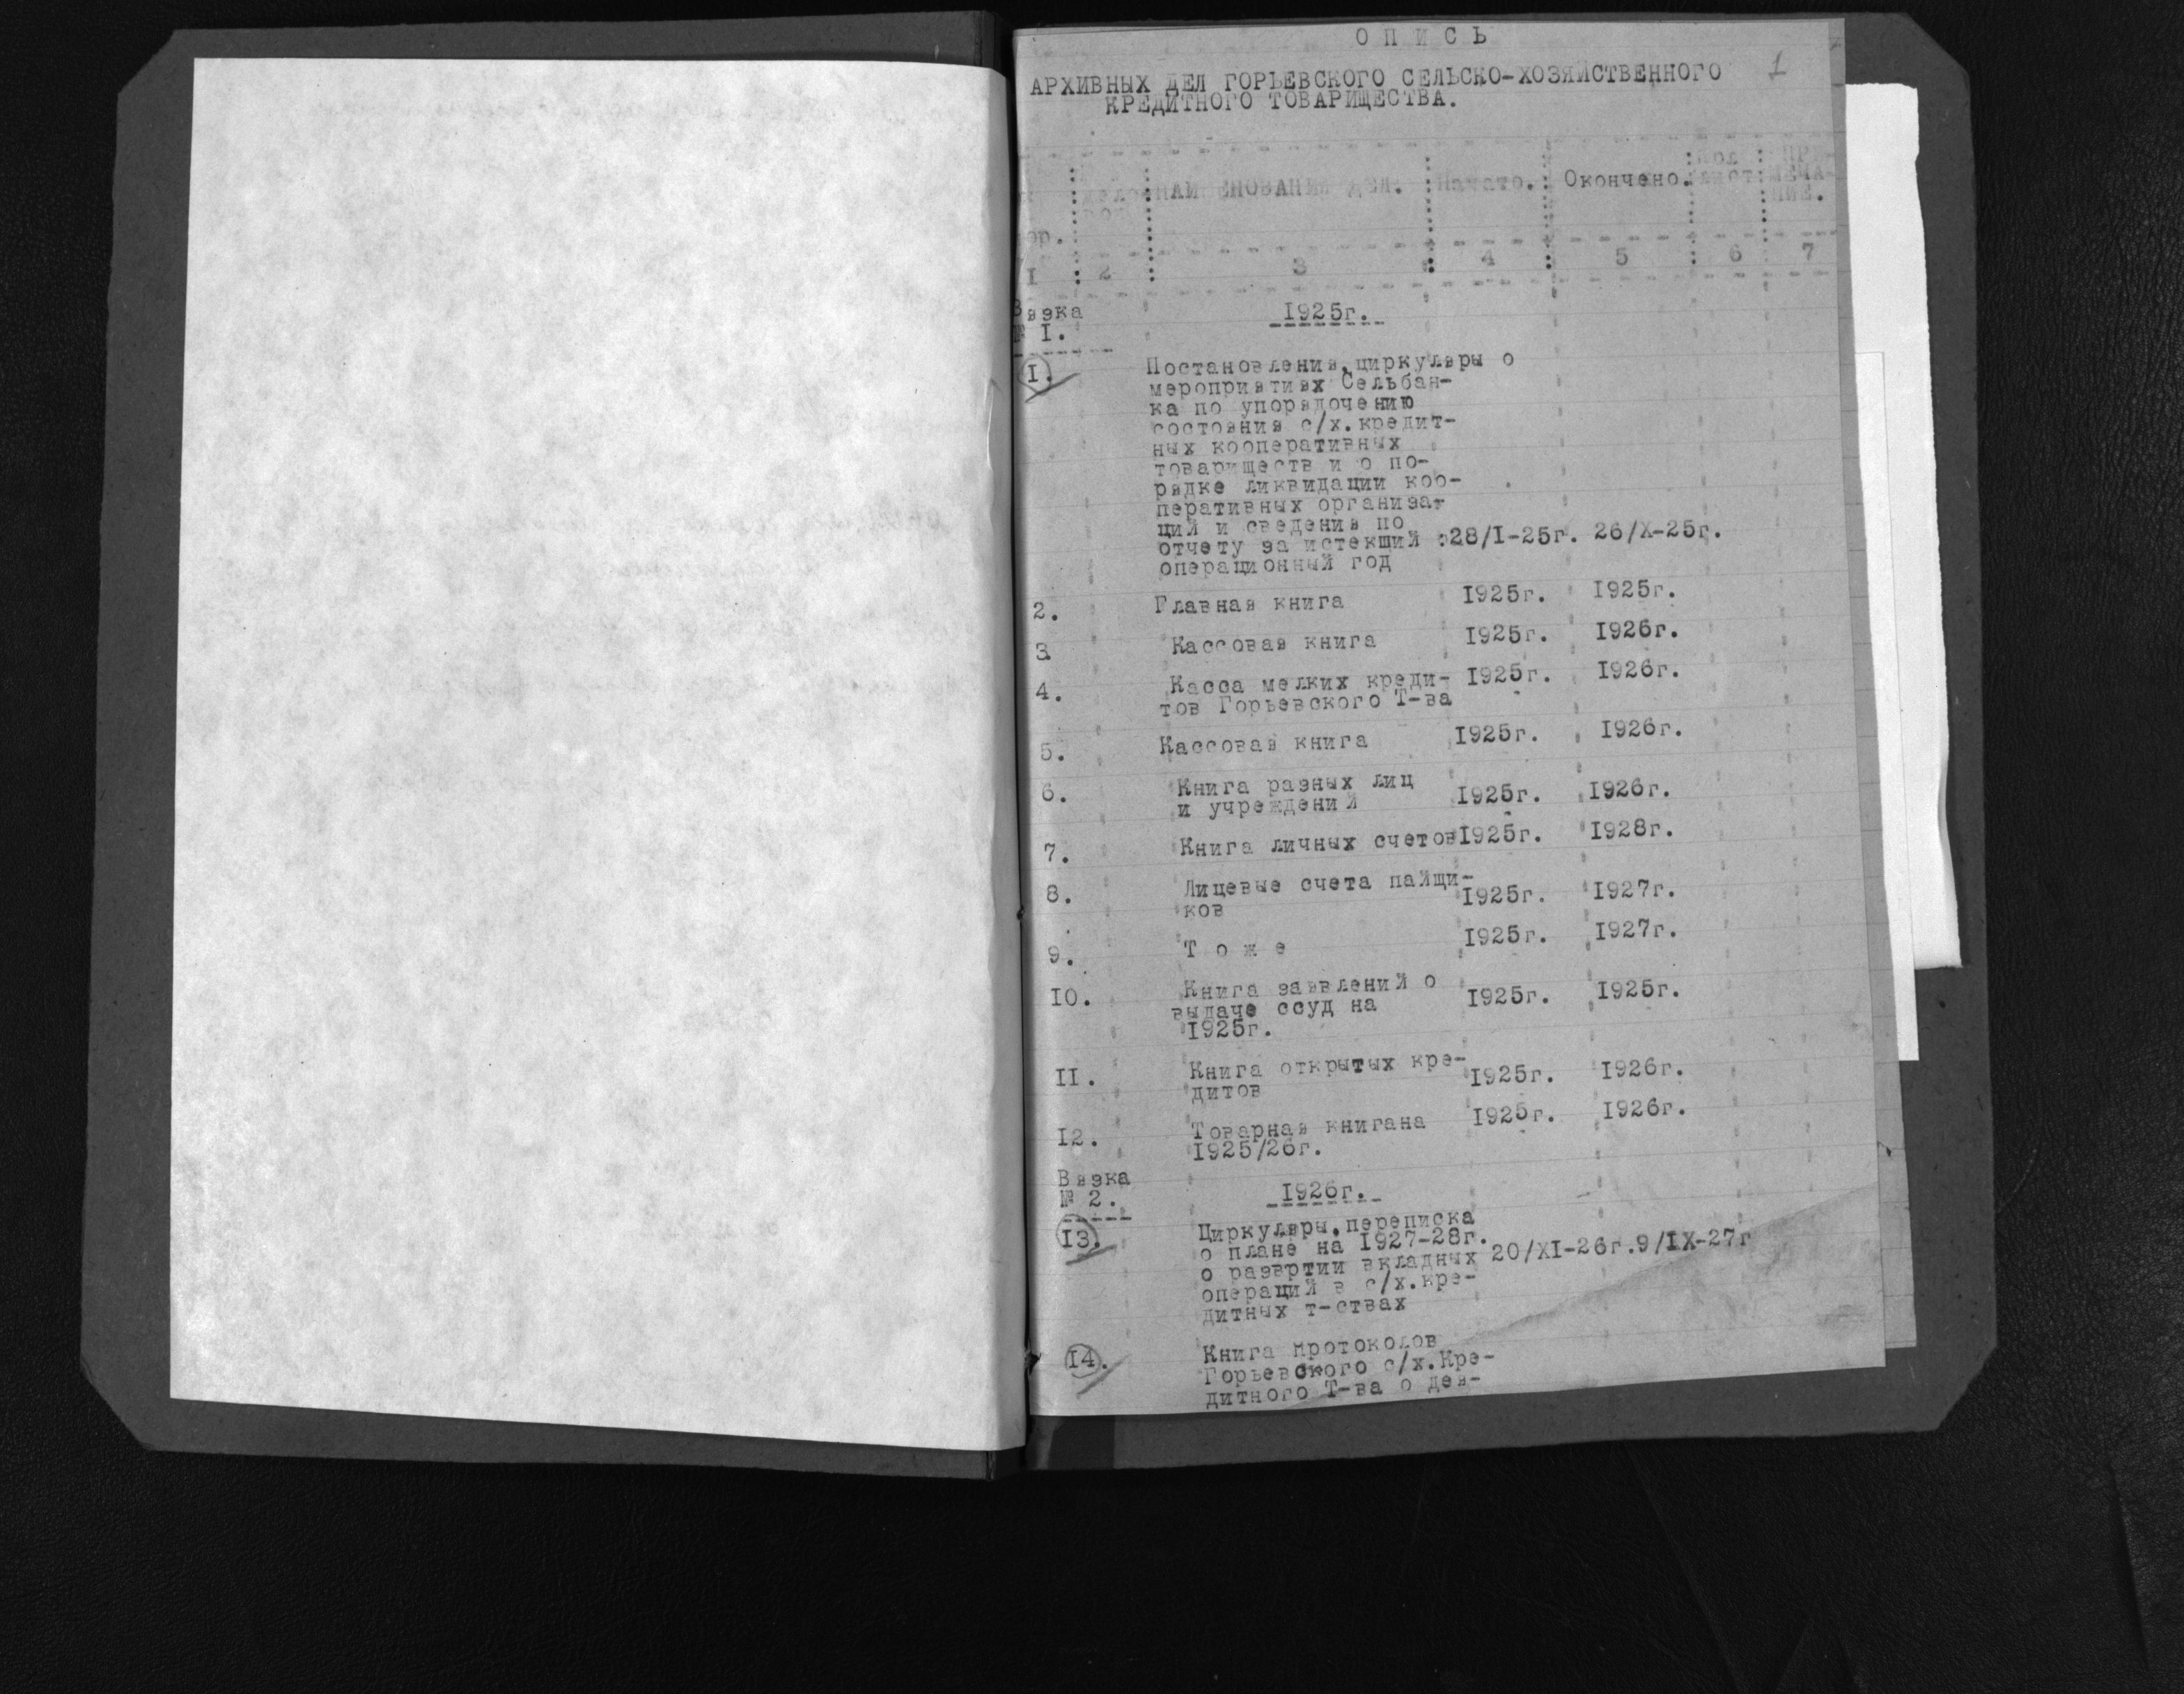 ОПИСЬ
1
АРХИВНЫХ ДЕЛ ГОРЬЕВСКОГО СЕЛЬСКО-ХОЗЯЙСТВЕННОГО
КРЕДИТНОГО ТОВАРИЩЕСТВА.
НАИМЕНОВАНИЕ ДЕЛ. Начато. Окончено.
I 2 3 4 5 6 7
Вязка
№ I.
I925г.
I. Постановления,циркуляры о
мероприятиях Сельбан-
ка по упорядочению
состояния с/х.кредит-
ных кооперативных
товариществ и о по-
рядке ликвидации коо-
перативных организа-
ций и сведения по
отчету за истекший :28/I-25г. 26/X-25г.
операционный год
2. Главная книга I925г. I925г.
3. Кассовая книга I925г. I926г.
4. Касса мелких креди- I925г. I926г.
тов Горьевского Т-ва
5. Кассовая книга I925г. I926г.
6. Книга разных лиц
и учреждений I925г. I926г.
7. Книга личных счетов I925г. I928г.
8. Лицевые счета пайщи-
ков I925г. I927г.
9. Т о ж е I925г. I927г.
I0. Книга заявлений о
выдаче ссуд на I925г. I925г.
I925г.
II. Книга открытых кре-
дитов I925г. I926г.
I2. Товарная книгана I925г. I926г.
I925/26г.
Вязка
№ 2.
I926г.
I3. Циркуляры,переписка
о плане на I927-28г.
о развртии вкладных 20/XI-26г.9/IX-27г
операций в с/х.кре-
дитных т-ствах
I4. Книга протоколов
Горьевского с/х.Кре-
дитного Т-ва о дея-